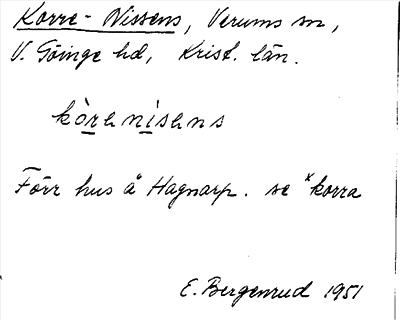 Korre-Nissens, Verums sn,
V. Göinge hd, Krist. län.
kòrenisens
Förr hus å Hagnarp. se *korra
E. Bergenrud 1951